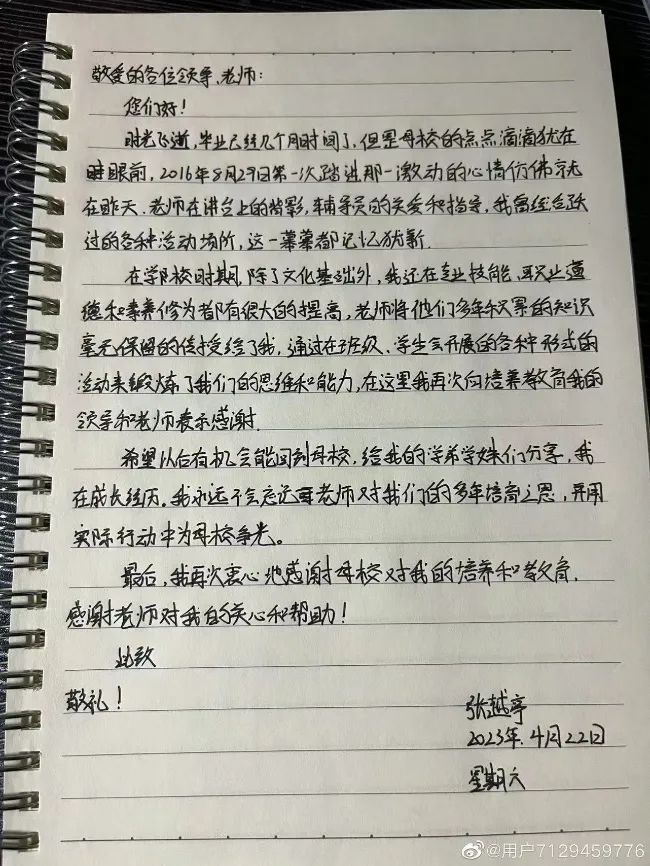 敬爱的各位领导、老师:
您们好!
时光飞逝,毕业已经几个月时间了,但是母校的点点滴滴犹在
眼前,2016年8月29日第一次踏进那一激动的心情仿佛就
在昨天.老师在讲台上的背影,辅导员的关爱和指导,我曾经
过的各种活动场所,这一幕幕都记忆犹新.
在学校时期,除了文化基础外,我还在专业技能、职业道
德和素养修为者都有很大的提高,老师将他们多年积累的知识
毫无保留的传授给了我,通过在班级、学生会开展的各种形式的
活动来锻炼了我们的思维和能力,在这里我再次向培养教育我的
领导和老师表示感谢.
希望以后有机会能回到母校,给我的学弟学妹们分享,我
在成长经历.我永远不会忘记老师对我们的多年培育之恩,并用
实际行动中为母校争光。
最后,我再次衷心地感谢母校对我的培养和教育,
感谢老师对我的关心和帮助!
此致
敬礼!
张越亭
2023年.4月22日
星期六
@用户7129459776